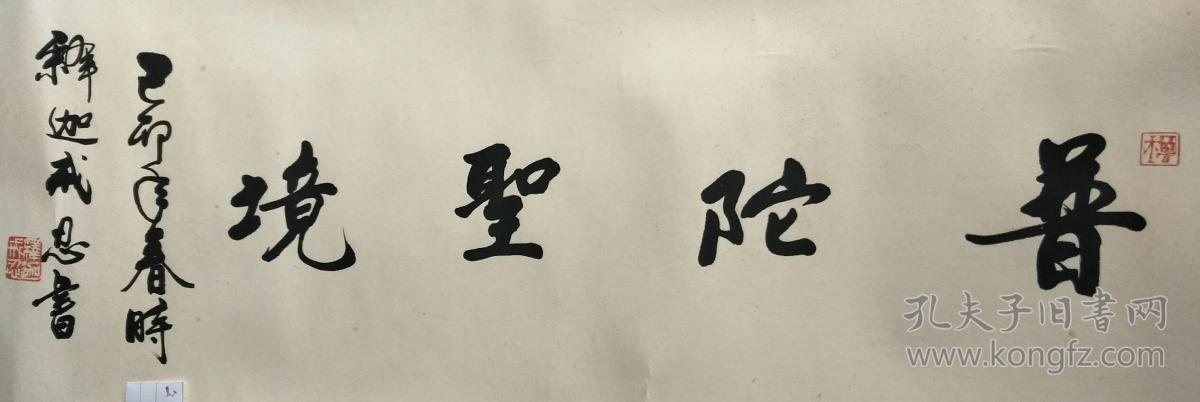 普陀聖境
己卯年春時
釋迦戒忍書
釋迦戒忍
孔夫子旧书网
www.kongfz.com